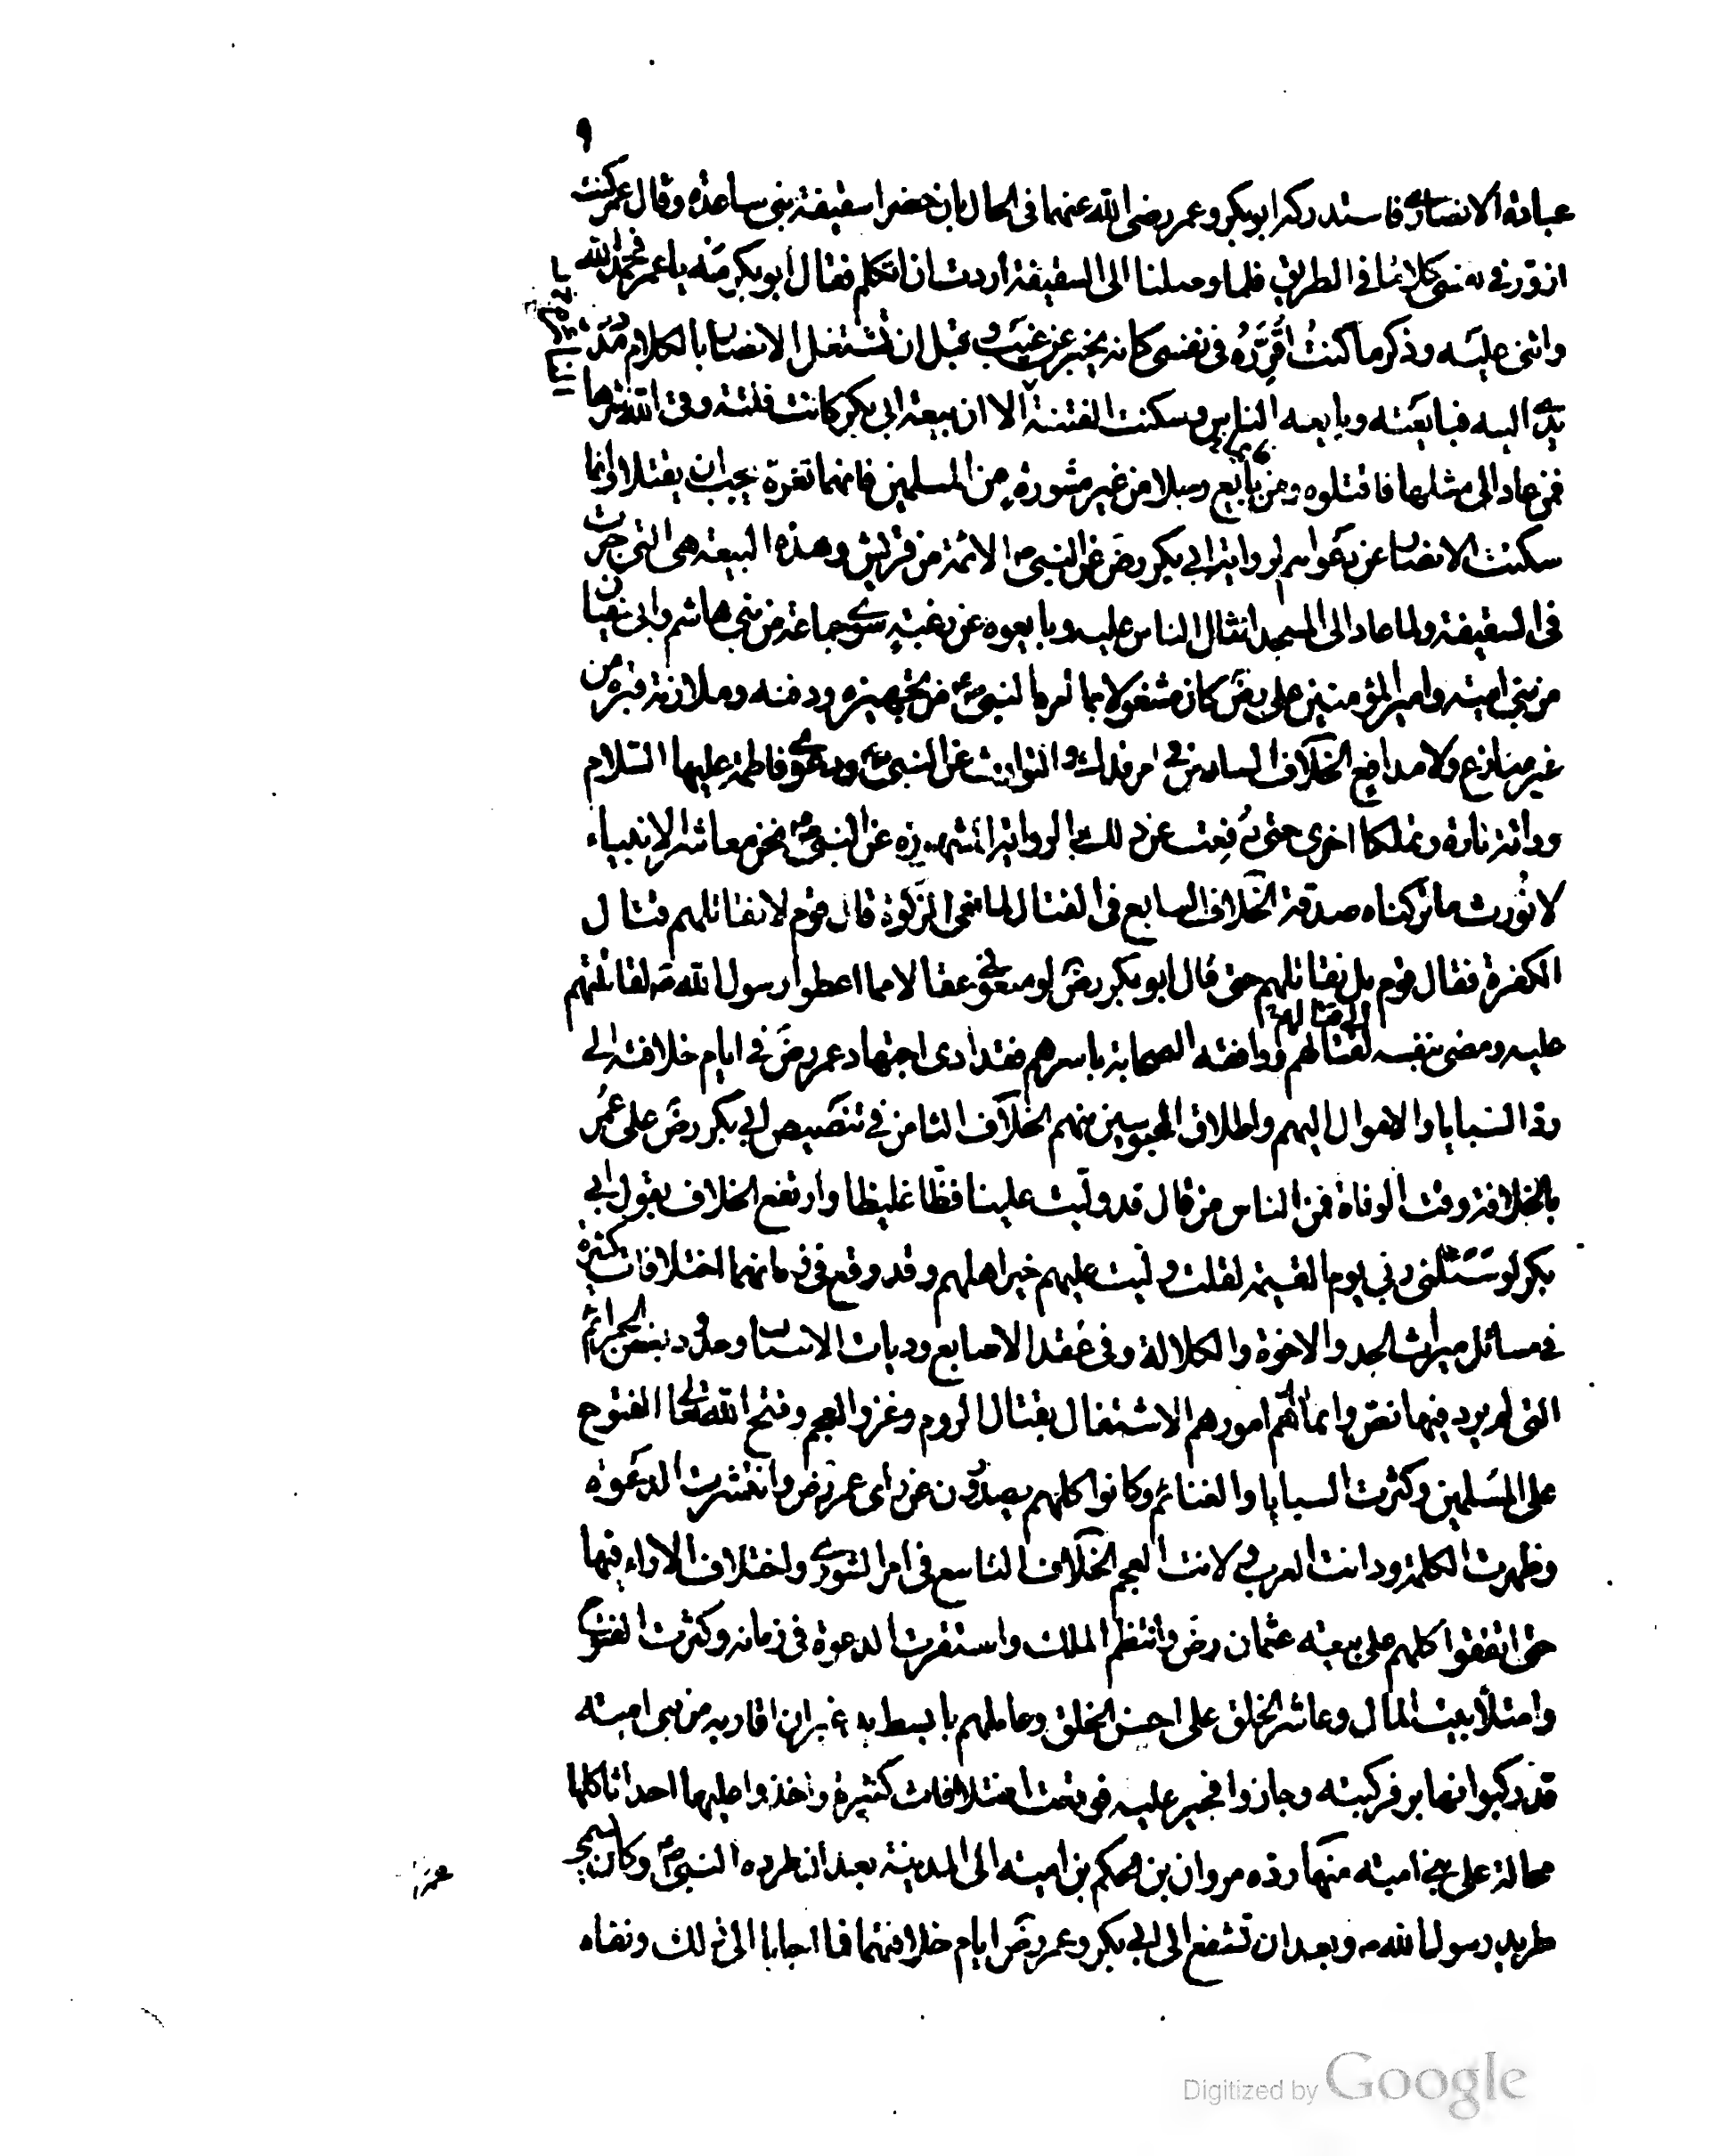 ٩
عبادة الانصارى فاستدركه ابوبكر وعمر رضى الله عنهما فى الحال بان حضرا سقيفة بنى ساعدة وقال عمر كنت
ازوّر فى نفسى كلاما فى الطريق فلما وصلنا الى السقيفة اردت ان اتكلم فقال ابو بكر مَه يا عمر فحمد الله
واثنى عليه وذكر ما كنتُ اُقدِّرُه فى نفسى كانه يخبر عن غيب فقبل ان تشتغل الانصار بالكلام مَددتُ
يدى اليه فبايَعته وبايعه الناس وسكنت الفتنة الا ان بيعة ابى بكر كانت فلتة وقى الله شرها
فمن عاد الى مثلها فاقتلوه ومن بايع رجلا من غير مشورة من المسلمين فانهما تغرة يجب ان يقتلا وانما
سكنت الانصار عن دعواهم لرواية ابى بكر رض عن النبى ص الائمة من قريش وهذه البيعة هى التى جرت
فى السقيفة ولما عاد الى المسجد انثال الناس عليه وبايعوه عن رغبةٍ سوى جماعة من بنى هاشم وابى سفيان
من بنى امية وامير المؤمنين على رض كان مشغولا بما امره النبى ص من تجهيزه ودفنه وملازمة قبره من
غير منازع ولا مدافع الخلاف السادس فى امر فدك والتوارث عن النبى ص ودعوى فاطمة عليها السلام
وراثة تارة وتملكا اخرى حتى دُفِعت عن ذلك بالرواية المشهورة عن النبى ص نحن معاشر الانبياء
لا نُورث ما تركناه صدقة الخلاف السابع فى قتال مانعى الزكوة قال قوم لا نقاتلهم قتال
الكفرة فقال قوم بل نقاتلهم حتى قال ابو بكر رض لو منعونى عقالا مما اعطوا رسول الله ص لقاتلتهم
الى قتالهم
عليه ومضى بنفسه لقتالهم ووافقه الصحابة باسرهم فقد ادى اجتهاد عمر رض فى ايام خلافته الى
ردّ السبايا والاموال اليهم واطلاق المحبوسين منهم الخلاف الثامن فى تنصيص ابى بكر رض على عمر
بالخلافة وقت الوفاة فمن الناس من قال قد وليت علينا فظّا غليظا وارتفع الخلاف بقول ابى
بكر لو سئلنى ربى يوم القيمة لقلت وليت عليهم خير اهلهم وقد وقع فى زمانهما اختلافات كثيرة
فى مسائل ميراث الجد والاخوة والكلالة وفى عقد الاصابع وديات الاسنان وحدود بعض الجرائم
التى لم يرد فيها نص وانما اهم امورهم الاشتغال بقتال الروم وغزو العجم وفتح الله تعالى الفتوح
على المسلمين وكثرت السبايا والغنائم وكانوا كلهم يصدرون عن راى عمر رض وانتشرت الدعوة
وظهرت الكلمة ودانت العرب ولانت العجم الخلاف التاسع فى امر الشورى واختلاف الاراء فيها
حتى اتفقوا كلهم على بيعة عثمان رض وانتظم الملك واستقرت الدعوة فى زمانه وكثرت الفتوح
وامتلأ بيت المال وعاشر الخلق على احسن الخلق وعاملهم بابسط يد غير ان اقاربه من بنى امية
قد ركبوا نهابر فركبته وجازوا فجير عليه فوقعت اختلافات كثيرة واخذوا عليها احداثا كلها
محالة على بنى امية منها رده مروان بن الحكم بن امية الى المدينة بعد ان طرده النبى ص وكان يسمى
طريد رسول الله ص وبعد ان تشفع الى ابى بكر وعمر رض ايام خلافتهما فما اجابا الى ذلك ونفاه
Digitized by Google